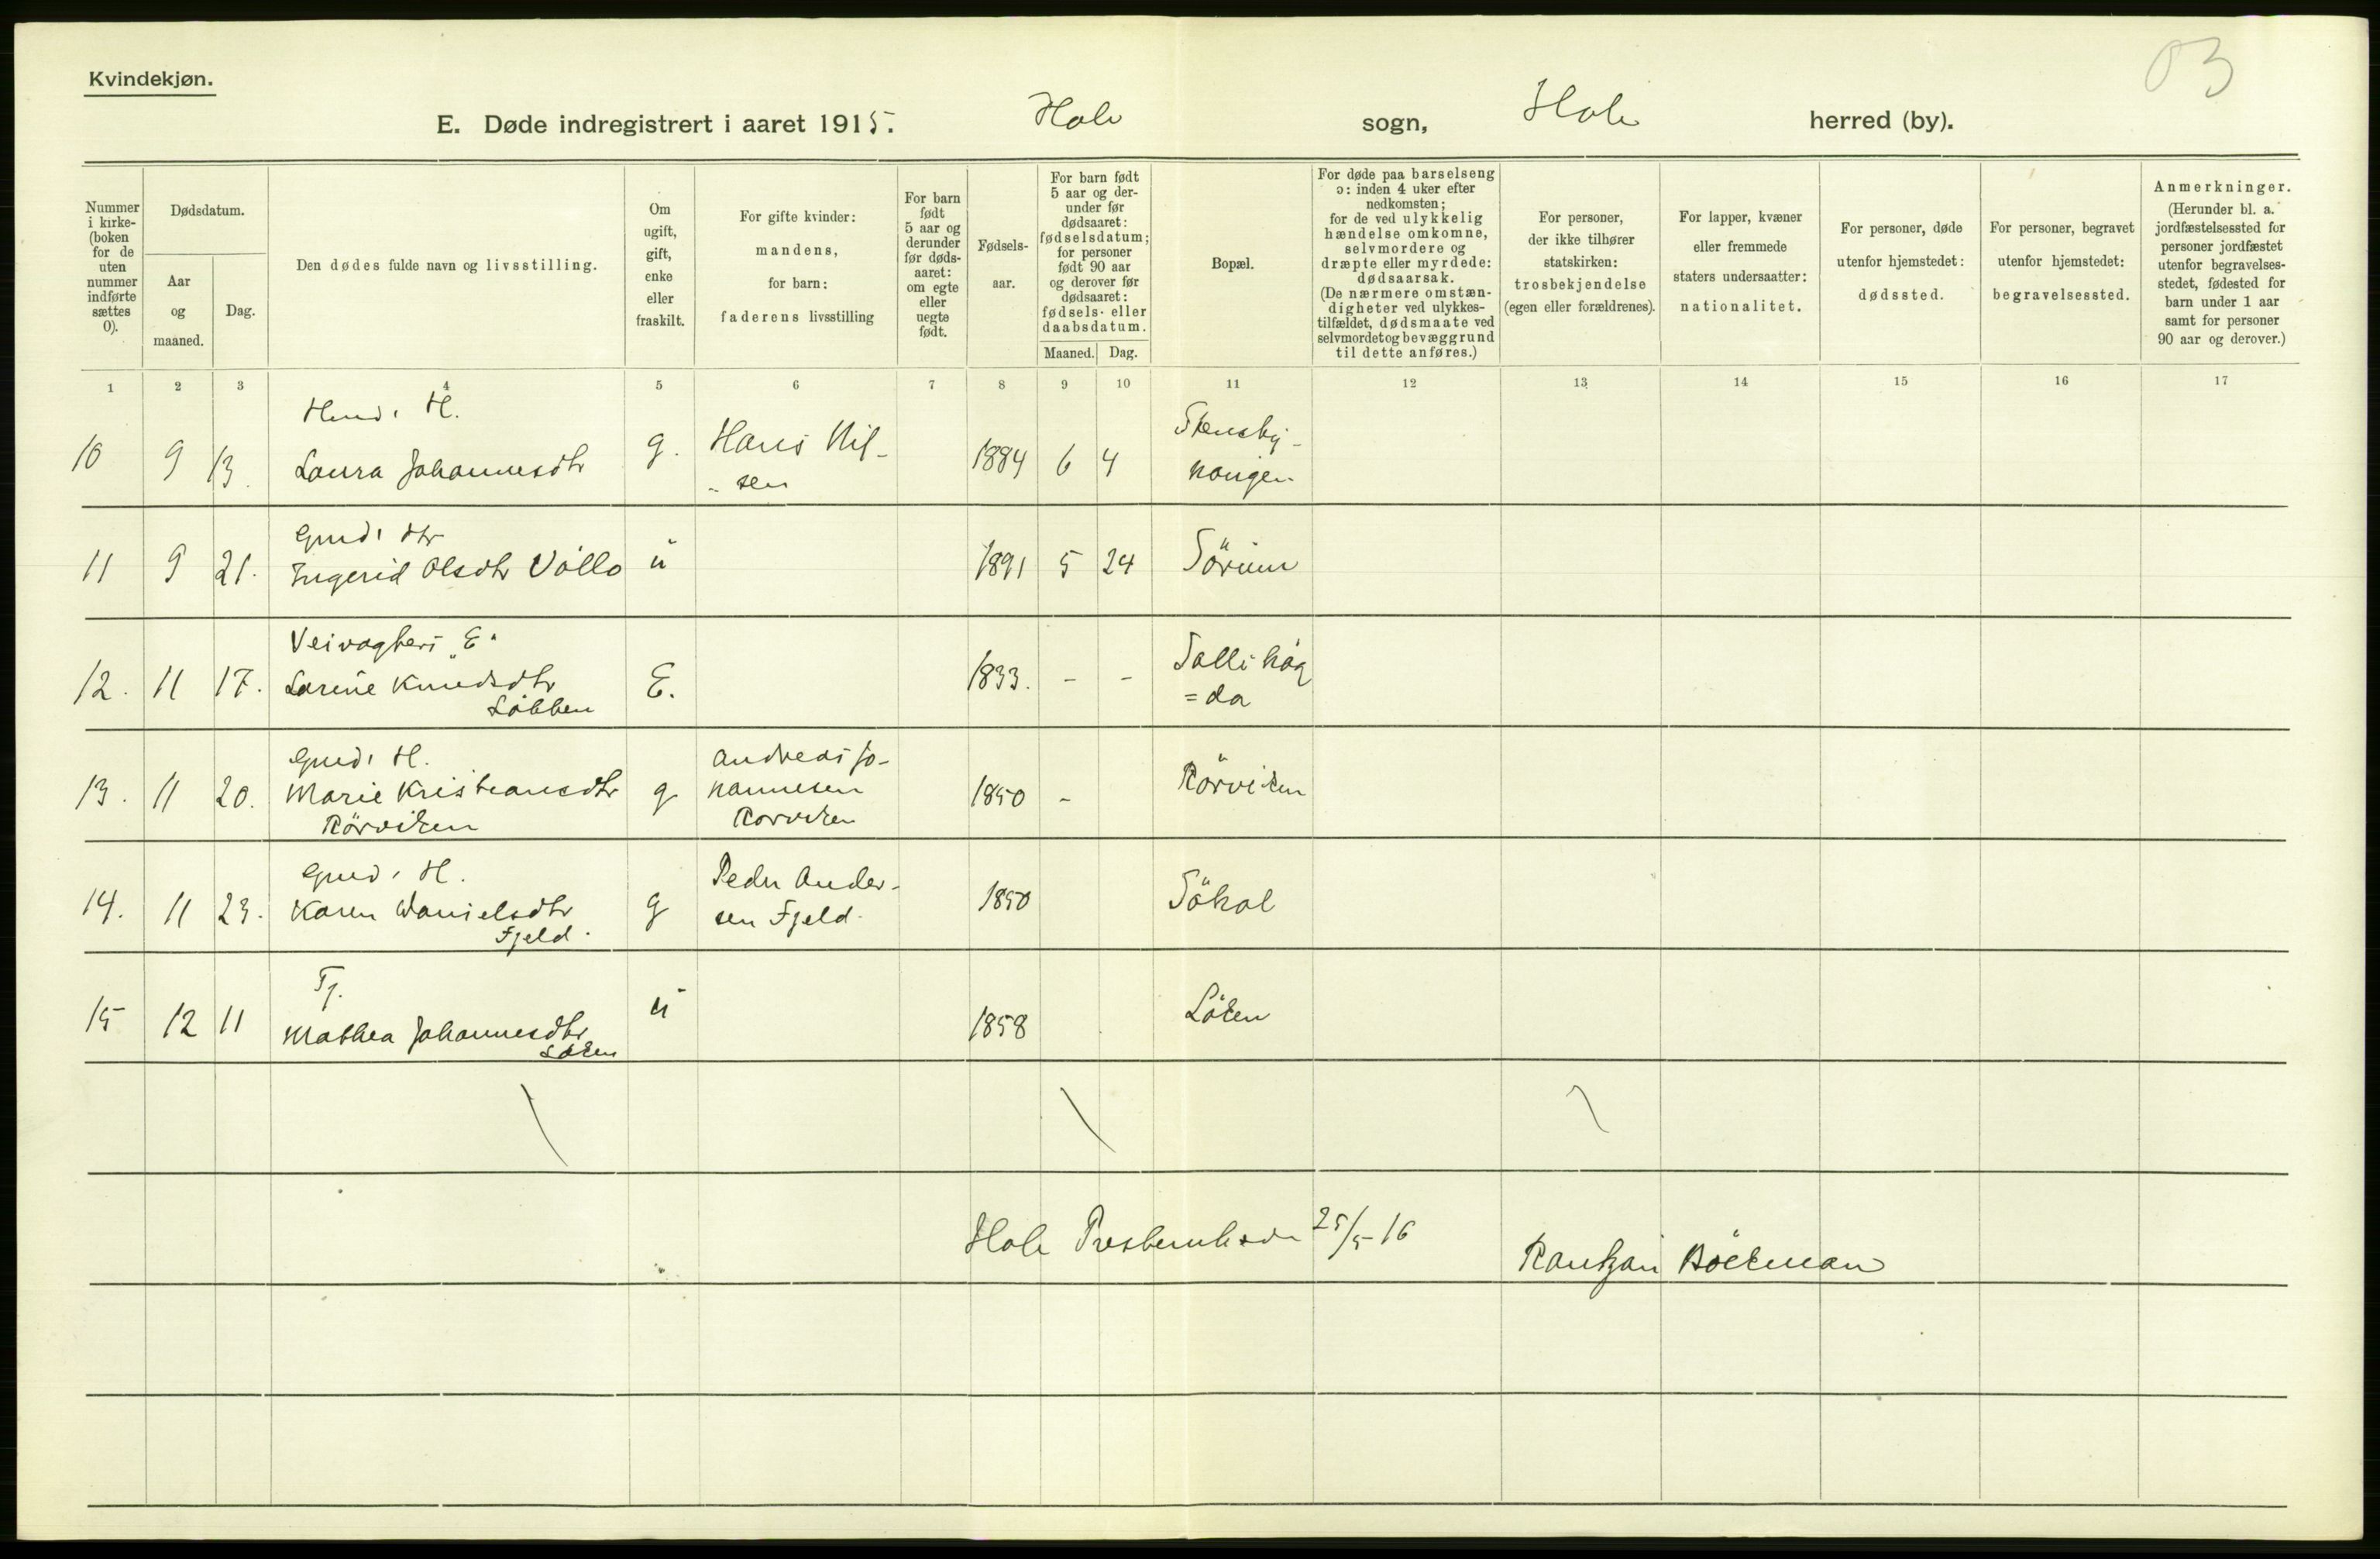 03
Kvindekjøn.
E. Døde indregistrert i aaret 1915. Hole sogn, Hole herred (by).
Nummer
i kirke-
(boken
for de
uten
nummer
indførte
sættes
0).
Dødsdatum.
Aar
og
maaned.
Dag.
Den dødes fulde navn og livsstilling.
Om
ugift,
gift,
enke
eller
fraskilt.
For gifte kvinder:
mandens,
for barn:
faderens livsstilling
For barn
født
5 aar og
derunder
før døds-
aaret:
om egte
eller
uegte
født.
Fødsels-
aar.
For barn født
5 aar og der-
under før
dødsaaret:
fødselsdatum;
for personer
født 90 aar
og derover før
dødsaaret:
fødsels- eller
daabsdatum.
Maaned. Dag.
Bopæl.
For døde paa barselseng
ɔ: inden 4 uker efter
nedkomsten;
for de ved ulykkelig
hændelse omkomne,
selvmordere og
dræpte eller myrdede:
dødsaarsak.
(De nærmere omstæn-
digheter ved ulykkes-
tilfældet, dødsmaate ved
selvmord et og bevæggrund
til dette anføres.)
For personer,
der ikke tilhører
statskirken:
trosbekjendelse
(egen eller forældrenes).
For lapper, kvæner
eller fremmede
staters undersaatter:
nationalitet.
For personer, døde
utenfor hjemstedet:
dødssted.
For personer, begravet
utenfor hjemstedet:
begravelsessted.
Anmerkninger.
(Herunder bl. a.
jordfæstelsessted for
personer jordfæstet
utenfor begravelses-
stedet, fødested for
barn under 1 aar
samt for personer
90 aar og derover.)
1 2 3 4 5 6 7 8 9 10 11 12 13 14 15 16 17
Hmd. H.
10 9 13. Laura Johannesdtr g. Hans Nil- 1884 6 4 Stensby-
- sen haugen
Gmd. dtr
11 9 21. Ingerid Olsdtr Völlo u 1891 5 24 Sörum
Veivogters "E"
12. 11 17. Lorine Knudsdtr E. 1833. - - Sollihög
Löbben = da
Gmd. H.
13. 11 20. Marie Kristiansdtr g Andreas Jo- 1850 - Rörviken
Rörviken hannesen
Rörviken
Gmd. H.
14. 11 23. Karen Danielsdtr g Peder Ander- 1850 Söhol
Fjeld. sen Fjeld.
Tj.
15 12 11 Mathea Johannesdtr u 1858 Löken
Löken
Hole 25/5-16
Böckman